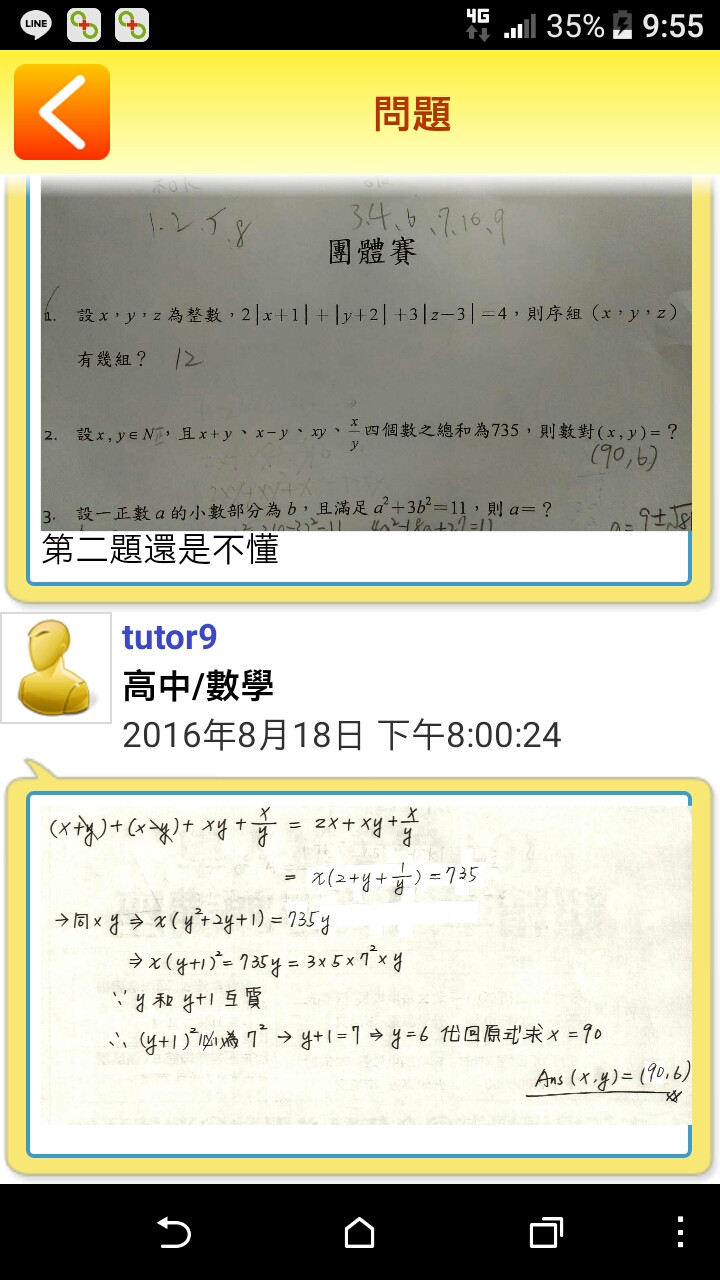 LINE 4G 35% 9:55
問題
1.2.5.8 3.4.6.7.10.9
團體賽
1. 設x,y,z為整數,2|x+1|+|y+2|+3|z-3|=4,則序組(x,y,z)
有幾組? 12
2. 設x,y∈N,且x+y、x-y、xy、x/y四個數之總和為735,則數對(x,y)=?
(90,6)
3. 設一正數a的小數部分為b,且滿足a²+3b²=11,則a=?
第二題還是不懂
tutor9
高中/數學
2016年8月18日 下午8:00:24
(x+y)+(x-y)+xy+x/y = 2x+xy+x/y
= x(2+y+1/y)=735
→同×y ⇒ x(y²+2y+1)=735y
⇒ x(y+1)²=735y=3×5×7²×y
∵ y 和 y+1 互質
∴ (y+1)² 為 7² → y+1=7 → y=6 代回原式求 x=90
Ans (x,y)=(90,6)